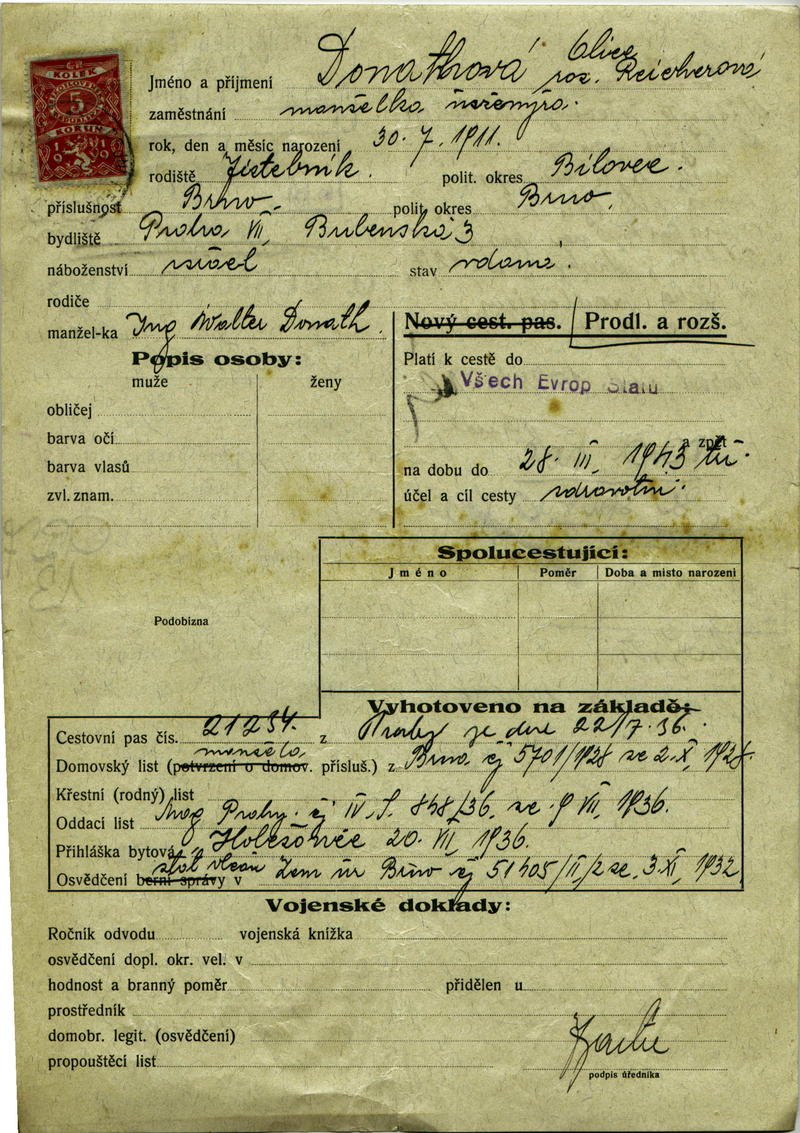 KOLEK
5
KORUN
Jméno a příjmení Donathová Alice
roz. Reicherová
zaměstnání manželka inženýra.
rok, den a měsíc narození 30. 7. 1911.
rodiště Jistebník. polit. okres Bílovec.
příslušnost Brno. polit. okres Brno.
bydliště Praha VII, Bubenská 3
náboženství israel stav vdaná.
rodiče
manžel-ka Ing Walter Donath.
Nový cest. pas. Prodl. a rozš.
Popis osoby:
muže ženy
obličej
barva očí
barva vlasů
zvl. znam.
Platí k cestě do
Všech Evrop Států
a zpět
na dobu do 28. III. 1943
účel a cíl cesty zdravotní.
Spolucestující:
Jméno Poměr Doba a místo narození
Podobizna
Vyhotoveno na základě:
Cestovní pas čís. 21234. z Prahy ze dne 22/7. 36.
manžela
Domovský list (potvrzení o domov. přísluš.) z Brna čj 5701/1928 ze 2.X. 1928.
Křestní (rodný) list
Oddací list Mag Prahy. čj IV. 848/36. ze 9 VII, 1936.
Přihláška bytová z Holešovic 20. VII, 1936.
stát občan
Osvědčení berní správy v Zem úř Brno čj 51405/II/2 ze 3.XI, 1932
Vojenské doklady:
Ročník odvodu vojenská knížka
osvědčení dopl. okr. vel. v
hodnost a branný poměr přidělen u
prostředník
domobr. legit. (osvědčení)
propouštěcí list
podpis úředníka